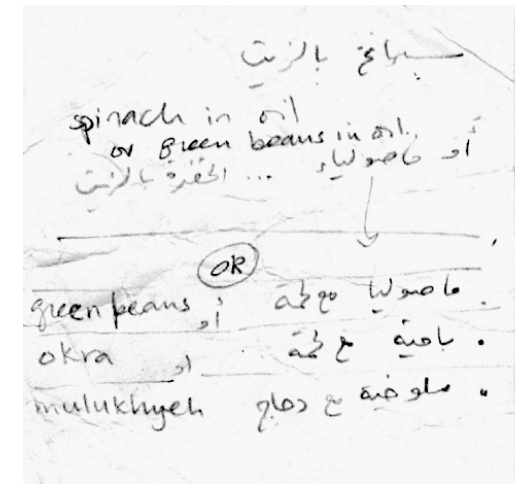 سبانخ بالزيت
spinach in oil
or green beans in oil.
أو فاصولياء ... الخضرة بالزيت
OR
green beans أو فاصوليا مع لحمة .
okra او بامية مع لحمة .
mulukhyeh ملوخية مع دجاج .